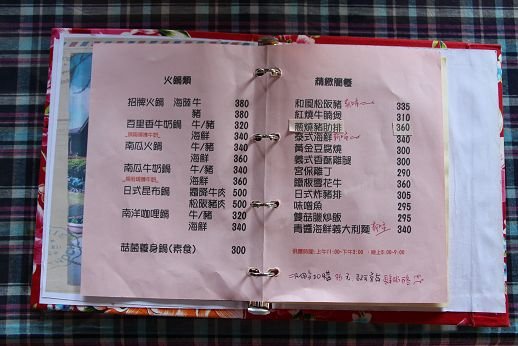 火鍋類
招牌火鍋 海陸牛 380
豬 380
百里香牛奶鍋 牛/豬 320
海鮮 340
南瓜火鍋 牛/豬 320
海鮮 340
南瓜牛奶鍋 牛/豬 340
海鮮 360
日式昆布鍋 牛肉 500
松阪豬肉 500
南洋咖哩鍋 牛/豬 320
海鮮 340
菇菌養身鍋(素食) 300
精緻簡餐
和風松阪豬 335
紅燒牛腩煲 310
蔥燒豬肋排 360
泰式海鮮 340
黃金豆腐燒 300
義式香酥雞腿 300
宮保雞丁 290
鐵板雪花牛 360
日式炸豬排 305
味噌魚 295
雙菇臘炒飯 295
青醬海鮮義大利麵 340
供應時間:上午11:00-下午3:00,晚上5:00-9:00